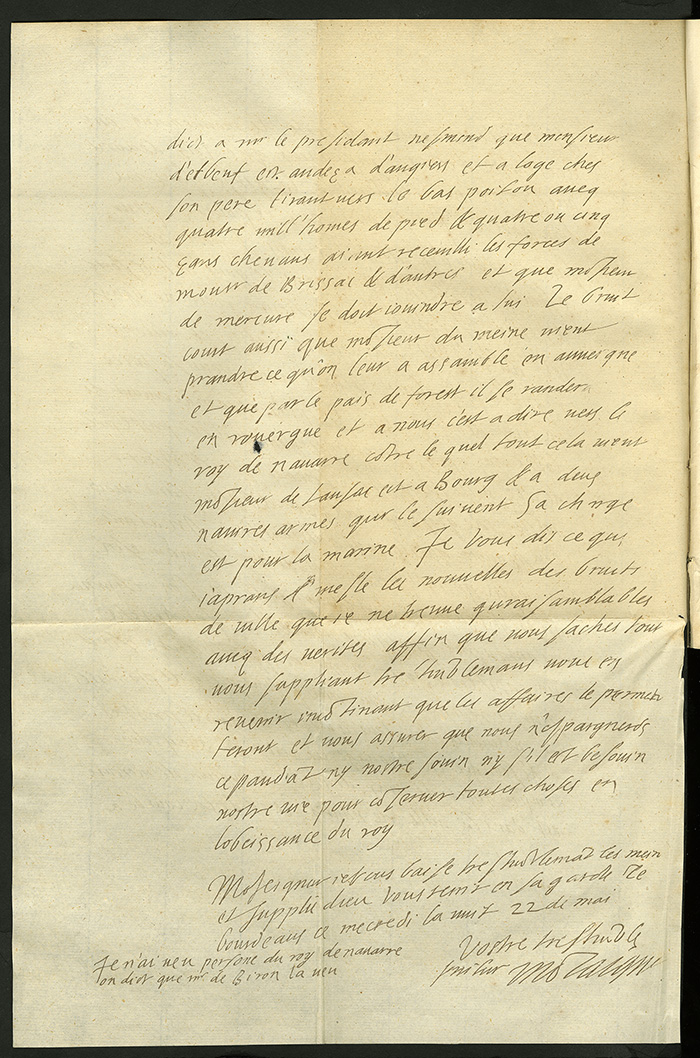 dict a mr le presidant nesmond que monsieur
d'elbeuf est en deça d'angiers et a logé ches
son pere tirant vers le bas poitou aveq
quatre mill' homes de pied & quatre ou cinq
çans chevaus aiant recueilli les forces de
monsr de Brissac & d'autres et que mosieur
de mercure se doit iouindre a lui Le bruit
court aussi que mosieur du meine vient
prandre ce qu'on leur a assamblé en auvergne
et que par le païs de forest il se randera
en rouergue et a nous c'est a dire vers le
roy de navarre côtre le quel tout cela vient
mosieur de lansac est a Bourg & a deus
navires armés qui le suivent Sa charge
est pour la marine Je vous dis ce que
i'aprans & mesle les nouvelles des bruits
de ville que ie ne treuve vraisamblables
aveq des verites affin que vous saches tout
vous suppliant tres humblemant vous en
revenir incôtinant que les affaires le permet
teront et vous assurer que nous n'espargnerôs
cepandât ny nostre souin ny s'il est besouin
nostre vie pour côserver toutes choses en
l'obeissance du roy
Moseignur ie vous baise tres humblemât les meins
et supplie dieu vous tenir en sa garde De
bourdeaus ce mecredi la nuit 22 de mai
Vostre tres humble
serviteur Montaigne
Je n'ai veu persone du roy de navarre
on dict que mr de Biron l'a veu